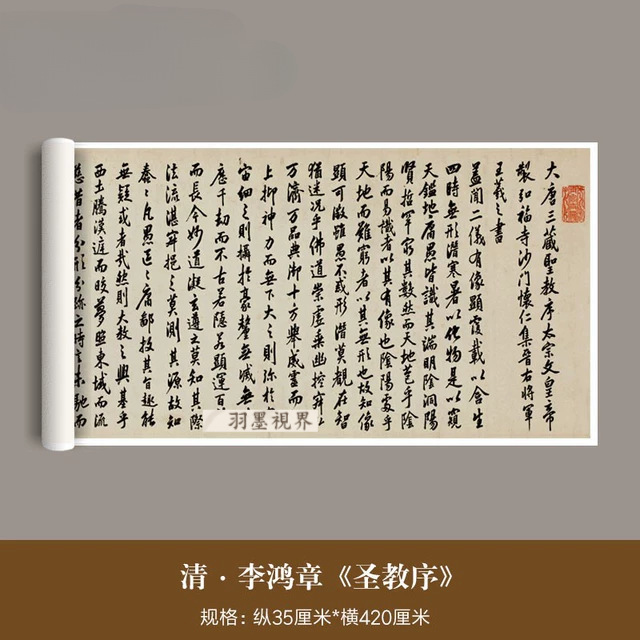 大唐三藏聖教序太宗文皇帝
製弘福寺沙門懷仁集晉右將軍
王羲之書
蓋聞二儀有像顯覆載以含生
四時無形潛寒暑以化物是以窺
天鑑地庸愚皆識其端明陰洞陽
賢哲罕窮其數然而天地苞乎陰
陽而易識者以其有像也陰陽處乎
天地而難窮者以其無形也故知像
顯可徵雖愚不惑形潛莫覩在智
猶迷況乎佛道崇虛乘幽控寂
濟万品典御十方舉威靈而
上抑神力而無下大之則彌於
宙細之則攝於豪釐無滅無
歷千劫而不古若隱若顯運百
而長今妙道凝玄遵之莫知其際
法流湛寂挹之莫測其源故知
蠢々凡愚區々庸鄙投其旨趣能
無疑或者哉然則大教之興基乎
西土騰漢庭而皎夢照東域而流
慈昔者分形分跡之時言未馳而
羽墨視界
清·李鸿章《圣教序》
规格：纵35厘米*横420厘米